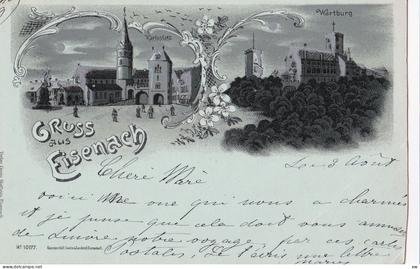 Karlsplatz
Wartburg
Gruss
aus
Eisenach
Le 3 Août
Cheré Mère
voici une qui nous a charmés
et je pense que cela doit vous amuser
de suivre notre voyage par ces cartes
postales, Le Paris une lettre
Nº 10177.